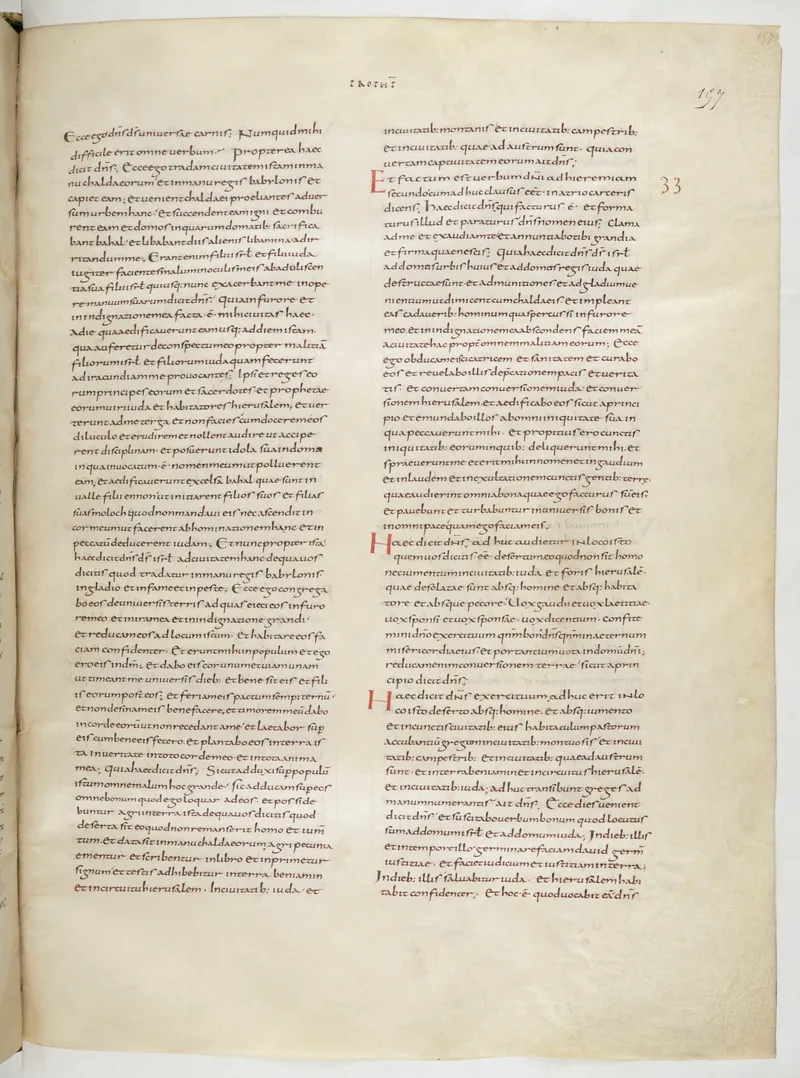 PROPHT̄
157
197
Ecce ego dn̄s dr̄ uniuersae carnis; Numquid mihi
difficile erit omne uerbum; Propterea haec
dicit dn̄s; Ecce ego tradam ciuitatem istam in ma
nu chaldaeorum et in manu regis babylonis et
capiet eam; et uenient chaldaei proeliantes aduer
sum urbem hanc et succendent eam igni et combu
rent eam et domos in quarum domatib: sacrifica
bant bahal et libabant diis alienis libamina ad ir
ritandum me; Erant enim filii isrl̄ et filii iuda
iugiter facientes malum in oculis meis ab aduliscen
tia sua filii isrl̄ qui usq: nunc exacerbant me in ope
re manuum suarum dicit dn̄s; Quia in furore et
in indignatione mea facta ē mihi ciuitas haec
a die qua aedificauerunt eam usq: ad diem istam
qua auferetur de conspectu meo propter malitiā
filiorum isrl̄ et filiorum iuda quam fecerunt
ad iracundiam me prouocantes; Ipsi et reges eo
rum principes eorum et sacerdotes et prophetae
eorum uiri iuda et habitatores hierusalem; et uer
terunt ad me terga et non facies cum docerem eos
diluculo et erudirem et nollent audire ut accipe
rent disciplinam et posuerunt idola sua in domo
in qua inuocatum ē nomen meum ut polluerent
eam; et aedificauerunt excelsa bahal quae sunt in
ualle filii ennon ut initiarent filios suos et filias
suas moloch quod non mandaui eis nec ascendit in
cor meum ut facerent abhominationem hanc et in
peccatū deducerent iudam; Et nunc propter ista
haec dicit dn̄s dr̄ isrl̄ ad ciuitatem hanc de qua uos
dicitis quod tradatur in manu regis babylonis
in gladio et in fame et in peste; Ecce ego congrega
bo eos de uniuersis terris ad quas eieci eos in furo
re meo et in ira mea et in indignatione grandi
et reducam eos ad locum istum et habitare eos fa
ciam confidenter; et erunt mihi in populum et ego
ero eis in dm̄; et dabo eis cor unum et uiam unam
ut timeant me uniuersis dieb: et bene sit eis et fili
is eorum post eos; et feriam eis pactum sempiternū
et non desinam eis benefacere; et timorem meū dabo
in corde eorū ut non recedant a me et laetabor sup̄
eis cum bene eis fecero et plantabo eos in terra is
ta in ueritate in toto corde meo et in tota anima
mea; Quia haec dicit dn̄s; Sicut adduxi sup̄ populū
istum omne malum hoc grande sic adducam sup̄ eos
omne bonum quod ego loquar ad eos et posside
buntur agri in terra ista de qua uos dicitis quod
deserta sit eo quod non remanserit homo et ium̄
tum et data sit in manu chaldaeorum agri pecunia
ementur et scribentur in libro et inprimetur
signum et testis adhibebitur in terra beniamin
et in circuitu hierusalem In ciuitatib: iuda et
in ciuitatib: montanis et in ciuitatib: campestrib:
et in ciuitatib: quae ad austrum sunt quia con
uertam captiuitatem eorum ait dn̄s;
Et factum est uerbum dn̄i ad hieremiam
secundo cum adhuc clausus eēt in atrio carceris
dicens; Haec dicit dn̄s qui facturus ē et forma
turus illud et paraturus dn̄s nomen eius; Clama
ad me et exaudiam te et annuntiabo tibi grandia
et firma quae nescis; Quia haec dicit dn̄s dr̄ isrl̄
ad domos urbis huius et ad domos regis iuda quae
destructae sunt et ad munitiones et ad gladium ue
nientium ut dimicent cum chaldaeis et impleant
eas cadauerib: hominum quos percussi in furore
meo et in indignatione mea abscondens faciem meā
a ciuitate hac propt̄ omnem malitiam eorum; Ecce
ego obducam eis cicatricem et sanitatem et curabo
eos et reuelabo illis dep̄cationem pacis et uerita
tis et conuertam conuersionem iuda et conuer
sionem hierusalem et aedificabo eos sicut a princi
pio et emundabo illos ab omni iniquitate sua in
qua peccauerunt mihi et propitius ero cunctis
iniquitatib: eorum in quib: deliquerunt mihi et
spraeuerunt me et erit mihi in nomen et in gaudium
et in laudem et in exultationem cunctis gentib: terre
quae audierint omnia bona quae ego facturus sū eis
et pauebunt et turbabuntur in uniuersis bonis et
in omni pace quam ego faciam eis;
Haec dicit dn̄s; adhuc audietur in loco isto
quem uos dicitis eē desertum eo quod non sit homo
nec iumentum in ciuitatib: iuda et foris hierusalē
quae desolatae sunt absq: homine et absq: habita
tore et absque pecore; Uox gaudii et uox laetitiae
uox sponsi et uox sponsae uox dicentium confite
mini dn̄o exercituum qn̄m bon̄ dn̄s qn̄m in aeternum
misericordia eius et portantium uota in domū dn̄i;
reducam enim conuersionem terrae sicut a prin
cipio dicit dn̄s;
Haec dicit dn̄s exercituum adhuc erit in lo
co isto deserto absq: homine et absq: iumento
et in cunctis ciuitatib: eius habitaculum pastorum
accubantiū gregum in ciuitatib: montuosis et in ciui
tatib: campestrib: et in ciuitatib: quae ad austrum
sunt et in terra beniamin et in circuitu hierusalē
et in ciuitatib: iuda; adhuc transibunt greges ad
manum numerantis ait dn̄s; Ecce dies uenient
dicit dn̄s et suscitabo uerbum bonum quod locutus
sum ad domum isrl̄ et ad domum iuda; In dieb: illis
et in tempor illo germinare faciam dauid germ̄
iustitiae et faciet iudicium et iustitiam in terra;
In dieb: illis saluabitur iuda et hierusalem habi
tabit confidenter; et hoc ē quod uocabit eū dn̄s
33